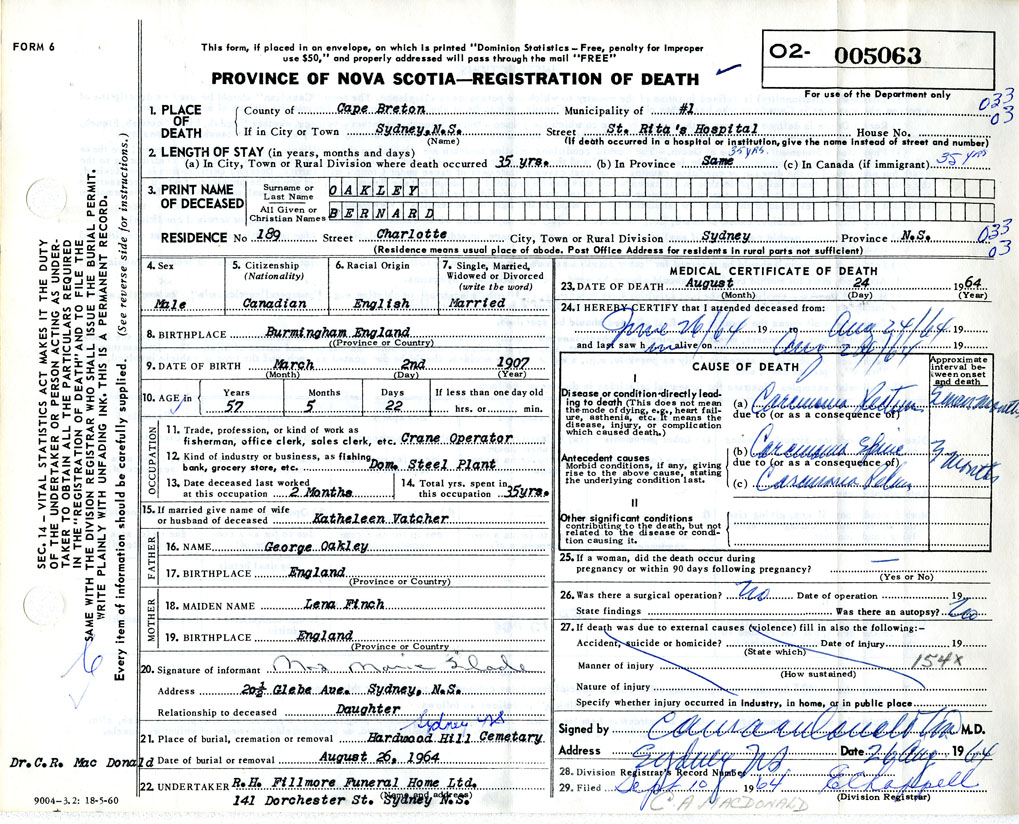 FORM 6
This form, if placed in an envelope, on which is printed "Dominion Statistics – Free, penalty for improper
use $50," and properly addressed will pass through the mail "FREE"
PROVINCE OF NOVA SCOTIA—REGISTRATION OF DEATH
O2- 005063
For use of the Department only
033
03
1. PLACE OF DEATH
County of Cape Breton Municipality of #1
If in City or Town Sydney, N.S. Street St. Rita's Hospital House No.
(Name) (If death occurred in a hospital or institution, give the name instead of street and number)
2. LENGTH OF STAY (in years, months and days)
35 yrs
(a) In City, Town or Rural Division where death occurred 35 yrs. (b) In Province Same (c) In Canada (if immigrant) 35 yrs
3. PRINT NAME OF DECEASED
Surname or Last Name OAKLEY
All Given or Christian Names BERNARD
RESIDENCE No 189 Street Charlotte City, Town or Rural Division Sydney Province N.S.
033
03
(Residence means usual place of abode. Post Office Address for residents in rural parts not sufficient)
4. Sex
Male
5. Citizenship
(Nationality)
Canadian
6. Racial Origin
English
7. Single, Married, Widowed or Divorced
(write the word)
Married
8. BIRTHPLACE Burmingham England
(Province or Country)
9. DATE OF BIRTH March 2nd 1907
(Month) (Day) (Year)
10. AGE in
Years Months Days If less than one day old
57 5 22 hrs. or min.
OCCUPATION
11. Trade, profession, or kind of work as
fisherman, office clerk, sales clerk, etc. Crane Operator
12. Kind of industry or business, as fishing,
bank, grocery store, etc. Dom. Steel Plant
13. Date deceased last worked at this occupation 2 Months
14. Total yrs. spent in this occupation 35yrs.
15. If married give name of wife
or husband of deceased Katheleen Vatcher
FATHER
16. NAME George Oakley
17. BIRTHPLACE England
(Province or Country)
MOTHER
18. MAIDEN NAME Lena Finch
19. BIRTHPLACE England
(Province or Country)
20. Signature of informant Mrs Marie Slade
Address 20½ Glebe Ave. Sydney, N.S.
Relationship to deceased Daughter
Sydney NS
21. Place of burial, cremation or removal Hardwood Hill Cemetary
Dr. C.R. Mac Donald
Date of burial or removal August 26, 1964
22. UNDERTAKER R.H. Fillmore Funeral Home Ltd.
(Name and address)
141 Dorchester St. Sydney N.S.
9004–3.2: 18-5-60
MEDICAL CERTIFICATE OF DEATH
23. DATE OF DEATH August 24 1964
(Month) (Day) (Year)
24. I HEREBY CERTIFY that I attended deceased from:
June 26/64 19 to Aug 24/64 19
and last saw him alive on Aug 24/64 19
CAUSE OF DEATH
Approximate interval between onset and death
I
Disease or condition directly leading to death (This does not mean
the mode of dying, e.g., heart failure, asthenia, etc. It means the
disease, injury, or complication
which caused death.)
(a) Carcinoma Rectum
due to (or as a consequence of)
Antecedent causes
Morbid conditions, if any, giving
rise to the above cause, stating
the underlying condition last.
(b) Carcinoma Spine
due to (or as a consequence of)
(c) Carcinoma Pelvis
months
II
Other significant conditions
contributing to the death, but not
related to the disease or condition causing it.
25. If a woman, did the death occur during
pregnancy or within 90 days following pregnancy? —
(Yes or No)
26. Was there a surgical operation? No Date of operation 19
State findings Was there an autopsy? No
27. If death was due to external causes (violence) fill in also the following:–
Accident, suicide or homicide? Date of injury 19
(State which)
154X
Manner of injury
(How sustained)
Nature of injury
Specify whether injury occurred in industry, in home, or in public place
Signed by M.D.
Address Sydney NS Date 26 Aug 1964
28. Division Registrar's Record Number
29. Filed Sept 10 1964 E Chappell
(Division Registrar)
C. A MACDONALD
SEC. 14 – VITAL STATISTICS ACT MAKES IT THE DUTY
OF THE UNDERTAKER OR PERSON ACTING AS UNDERTAKER TO OBTAIN ALL THE PARTICULARS REQUIRED
IN THE "REGISTRATION OF DEATH" AND TO FILE THE
SAME WITH THE DIVISION REGISTRAR WHO SHALL ISSUE THE BURIAL PERMIT.
WRITE PLAINLY WITH UNFADING INK. THIS IS A PERMANENT RECORD.
Every item of information should be carefully supplied. (See reverse side for instructions.)